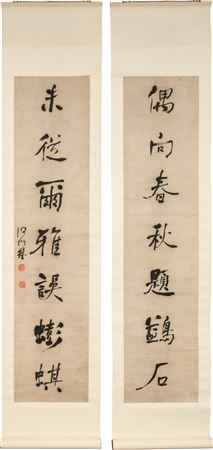 偶向春秋題鷁石
未從爾雅誤蟛蜞
何紹基